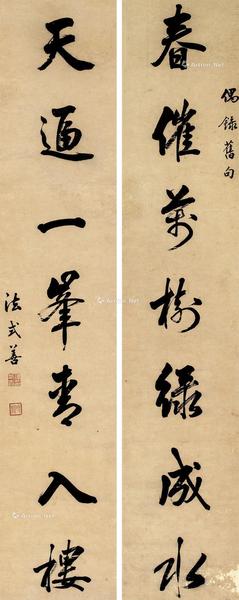 偶錄舊句
春催萬樹綠成水
天逼一峯青入樓
法式善